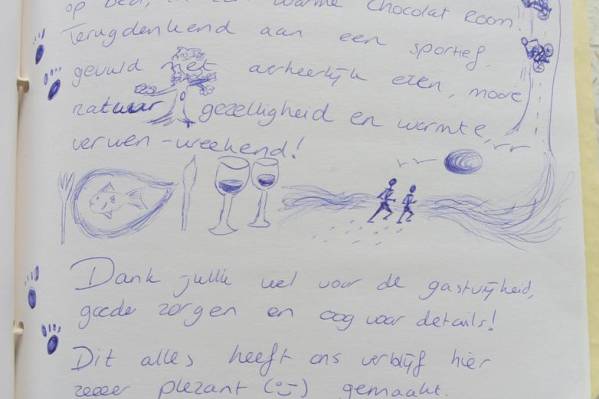 op bed, in een warme Chocolat Room!
Terugdenkend aan een sportief,
gevuld met erheerlijk eten, mooie
natuur, gezelligheid en warmte,
verwen-weekend!
Dank jullie wel voor de gastvrijheid,
goede zorgen en oog voor details!
Dit alles heeft ons verblijf hier
zeeer plezant (:) gemaakt.